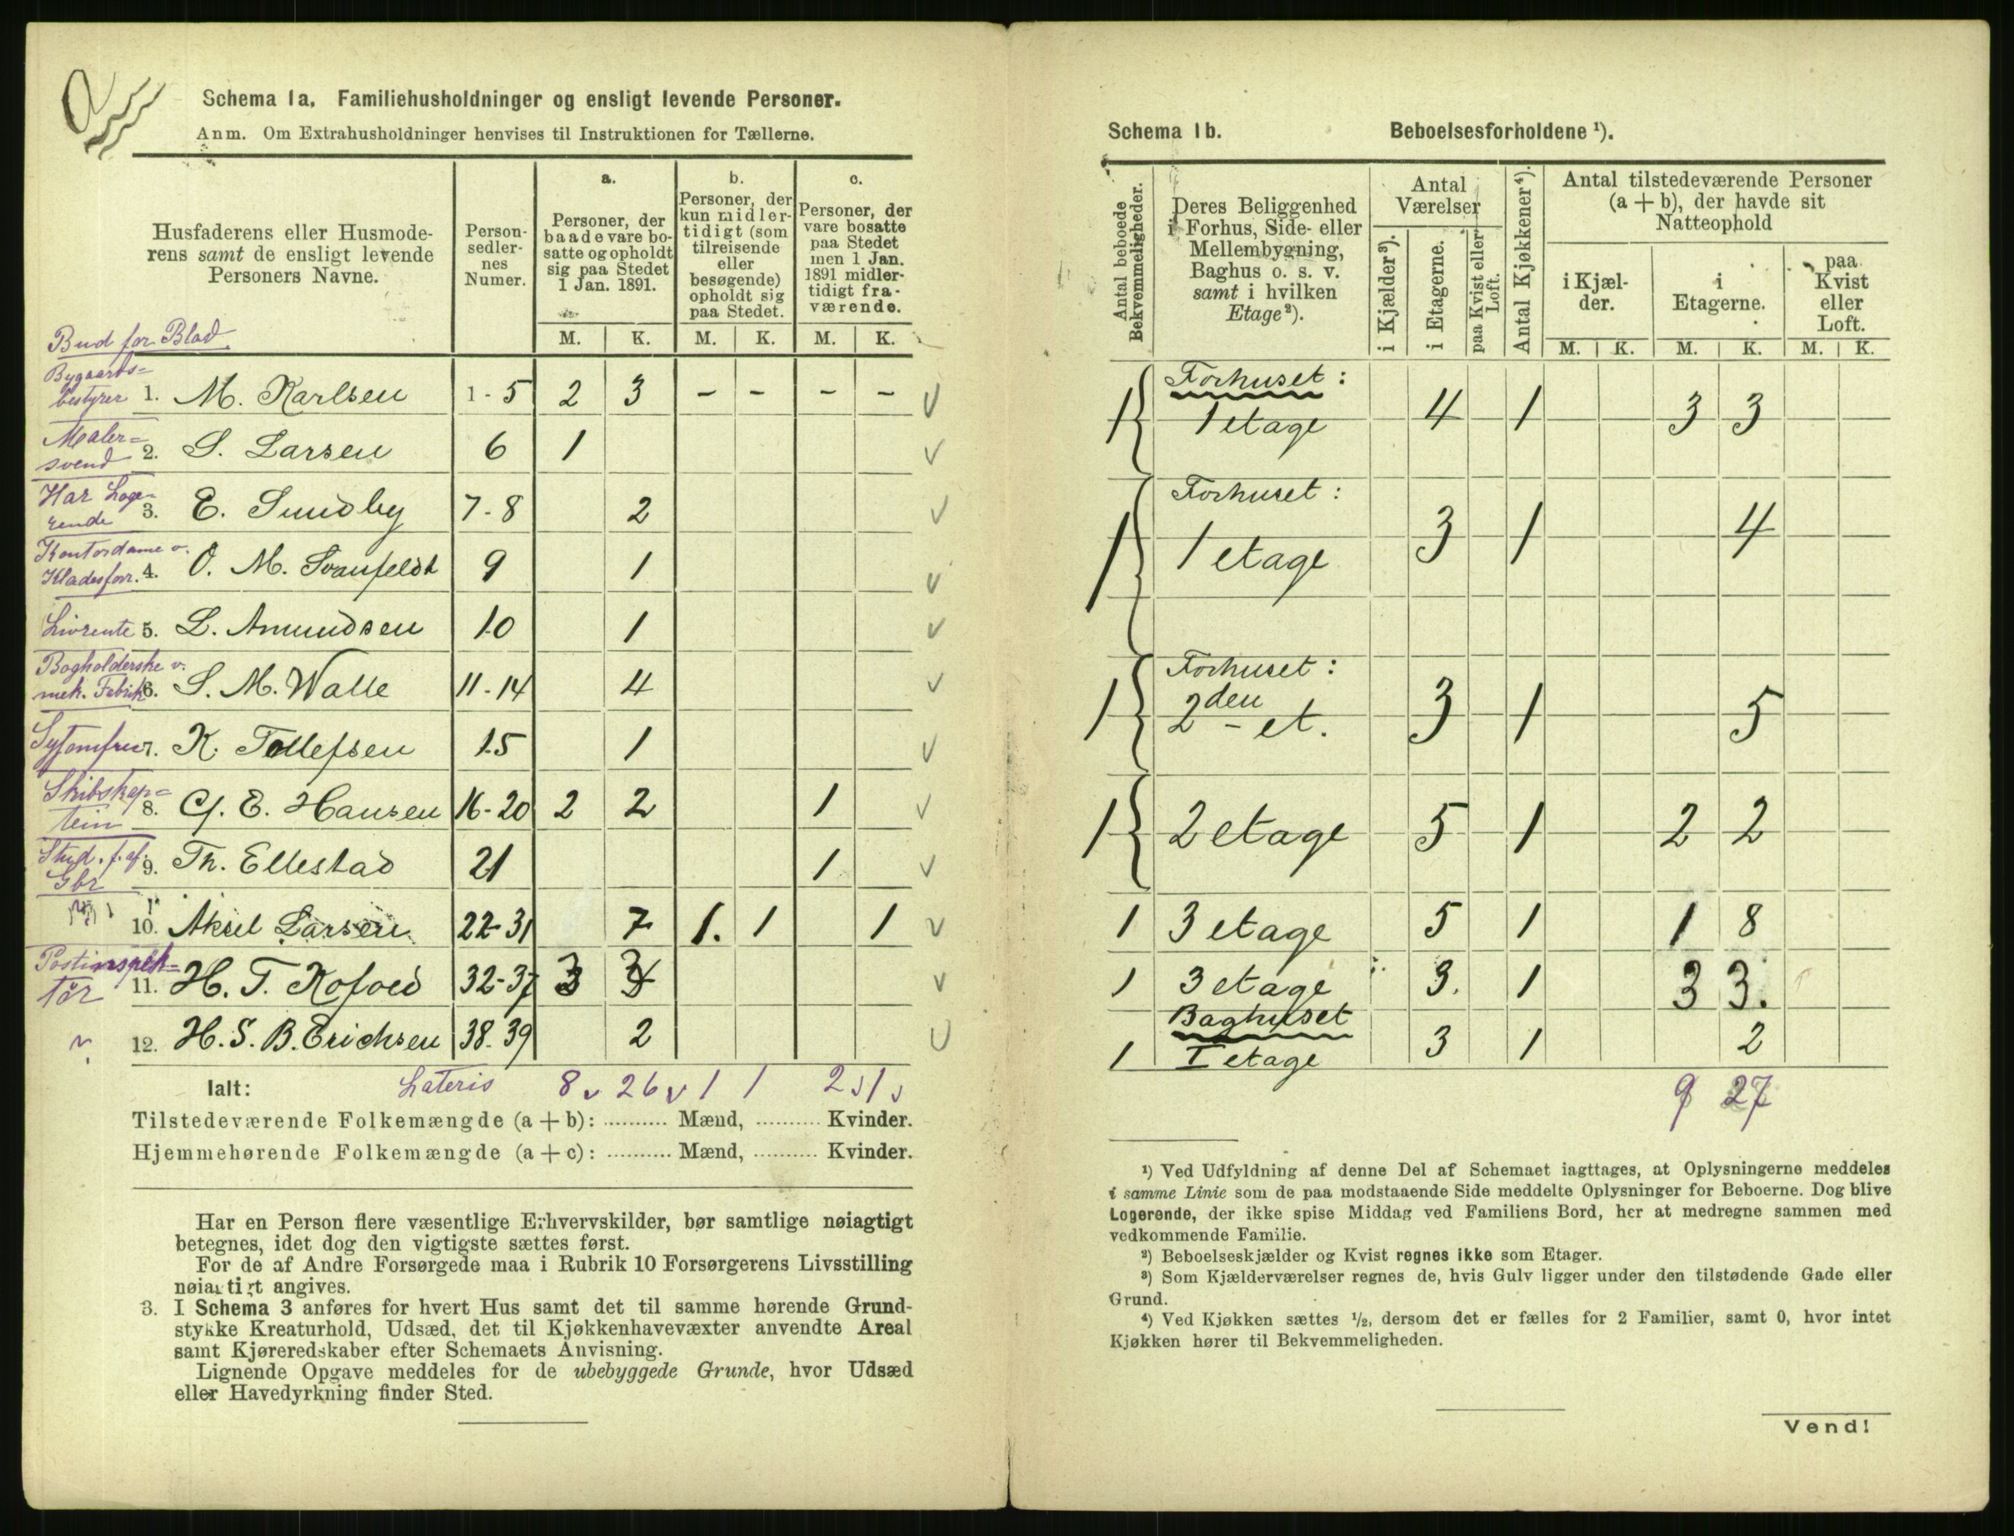 Schema 1a. Familiehusholdninger og ensligt levende Personer.
Anm. Om Extrahusholdninger henvises til Instruktionen for Tællerne.
Husfaderens eller Husmoderens samt de ensligt levende Personers Navne.
Personsedlernes Numer.
a.
Personer, der baade vare bosatte og opholdt sig paa Stedet 1 Jan. 1891.
b.
Personer, der kun midlertidigt (som tilreisende eller besøgende) opholdt sig paa Stedet.
c.
Personer, der vare bosatte paa Stedet men 1 Jan. 1891 midlertidigt fraværende.
M. K. M. K. M. K.
Bud for Blad
Bygaards=bestyrer 1. M. Karlsen 1-5 2 3 - - - -
Maler=svend 2. S. Larsen 6 1
Har Loge=rende 3. E. Sundby 7-8 2
Kontordame v. Kladesforr. 4. O. M. Svanfeldt 9 1
Livrente 5. L. Amundsen 10 1
Bogholderske v. mek. Fabrik 6. S. M. Walle 11-14 4
Syjomfru 7. K. Tollefsen 15 1
Skibskap=tein 8. Cf. E. Hansen 16-20 2 2 1
Stud. f. af Gbr 9. Th. Ellestad 21 1
10. Aksel Larsen 22-31 7 1. 1 1
Postinspek=tør 11. H. T. Kofoed 32-37 3 3
12. H. S. B. Erichsen 38.39 2
Ialt: Lateris 8 26 1 1 2 1
Tilstedeværende Folkemængde (a + b): .......... Mænd, .......... Kvinder.
Hjemmehørende Folkemængde (a + c): .......... Mænd, .......... Kvinder.
Har en Person flere væsentlige Erhvervskilder, bør samtlige nøiagtigt
betegnes, idet dog den vigtigste sættes først.
For de af Andre Forsørgede maa i Rubrik 10 Forsørgerens Livsstilling
nøiagtigt angives.
3. I Schema 3 anføres for hvert Hus samt det til samme hørende Grund-
stykke Kreaturhold, Udsæd, det til Kjøkkenhavevæxter anvendte Areal
samt Kjøreredskaber efter Schemaets Anvisning.
Lignende Opgave meddeles for de ubebyggede Grunde, hvor Udsæd
eller Havedyrkning finder Sted.
Schema 1b. Beboelsesforholdene ¹).
Antal beboede Bekvemmeligheder.
Deres Beliggenhed i Forhus, Side- eller Mellembygning, Baghus o. s. v. samt i hvilken Etage²).
Antal Værelser
i Kjælder³).
i Etagerne.
paa Kvist eller Loft.
Antal Kjøkkener⁴).
Antal tilstedeværende Personer (a + b), der havde sit Natteophold
i Kjælder.
i Etagerne.
paa Kvist eller Loft.
M. K. M. K. M. K.
1 Forhuset: 1 etage 4 1 3 3
1 Forhuset: 1 etage 3 1 4
1 Forhuset: 2den et. 3 1 5
1 2 etage 5 1 2 2
1 3 etage 5 1 1 8
1 3 etage 3. 1 3 3.
1 Baghuset I etage 3 1 2
9 27
¹) Ved Udfyldning af denne Del af Schemaet iagttages, at Oplysningerne meddeles
i samme Linie som de paa modstaaende Side meddelte Oplysninger for Beboerne. Dog blive
Logerende, der ikke spise Middag ved Familiens Bord, her at medregne sammen med
vedkommende Familie.
²) Beboelseskjælder og Kvist regnes ikke som Etager.
³) Som Kjælderværelser regnes de, hvis Gulv ligger under den tilstødende Gade eller
Grund.
⁴) Ved Kjøkken sættes ½, dersom det er fælles for 2 Familier, samt 0, hvor intet
Kjøkken hører til Bekvemmeligheden.
Vend!